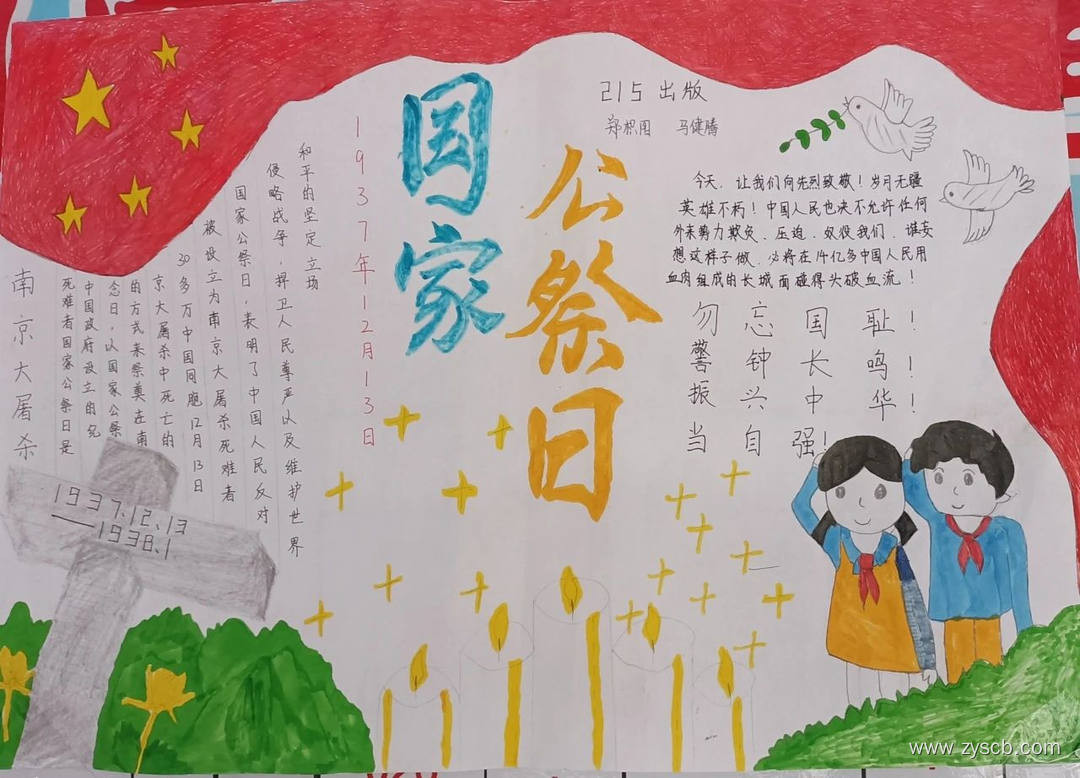 国家
公祭日
215 出版
马健腾
1937年12月13日
南京大屠杀
死难者国家公祭日是
中国政府设立的纪
念日，以国家公祭
的方式来祭奠在南
京大屠杀中死亡的
30多万中国同胞12月13日
被设立为南京大屠杀死难者
国家公祭日，表明了中国人民反对
侵略战争，捍卫人民尊严以及维护世界
和平的坚定立场
今天，让我们向先烈致敬！岁月无疆
英雄不朽！中国人民也决不允许任何
外来势力欺负、压迫、奴役我们，谋妄
想这样子做，必将在14亿多中国人民用
血肉组成的长城面碰得头破血流！
勿忘国耻！
警钟长鸣！
振兴中华！
当自强！
1937.12.13
—1938.1
www.zyscb.com